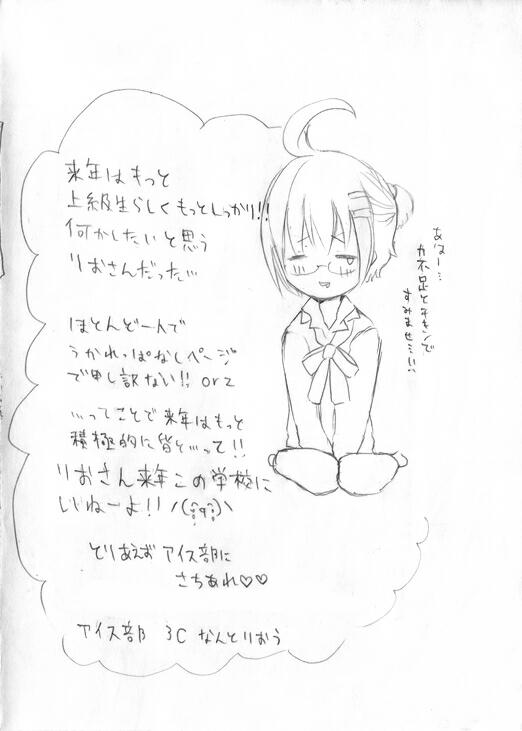 来年はもっと
上級生らしくもっとしっかり!!
何かしたいと思う
りおさんだった…
ほとんど一人で
うかれっぱなしページ
で申し訳ない!! orz
…ってことで来年はもっと
積極的に皆と…って!!
りおさん来年この学校に
いねーよ!!
とりあえず アイス部に
さちあれ♡♡
アイス部 3C なんとりおう
あー…
力不足と手キンで
すみませ…!!